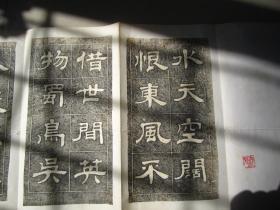 水天空闊
恨東風不
借世間英
物蜀鳥吳